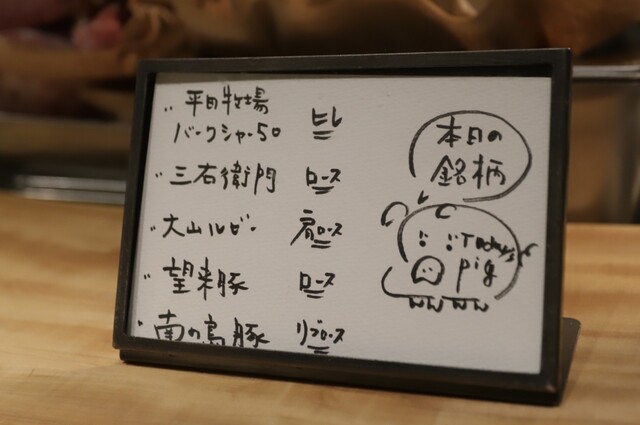 平田牧場
バークシャー50 ヒレ
三右衛門 ロース
大山ルビー 肩ロース
望来豚 ロース
南の島豚 リブロース
本日の
銘柄
Today's
pig